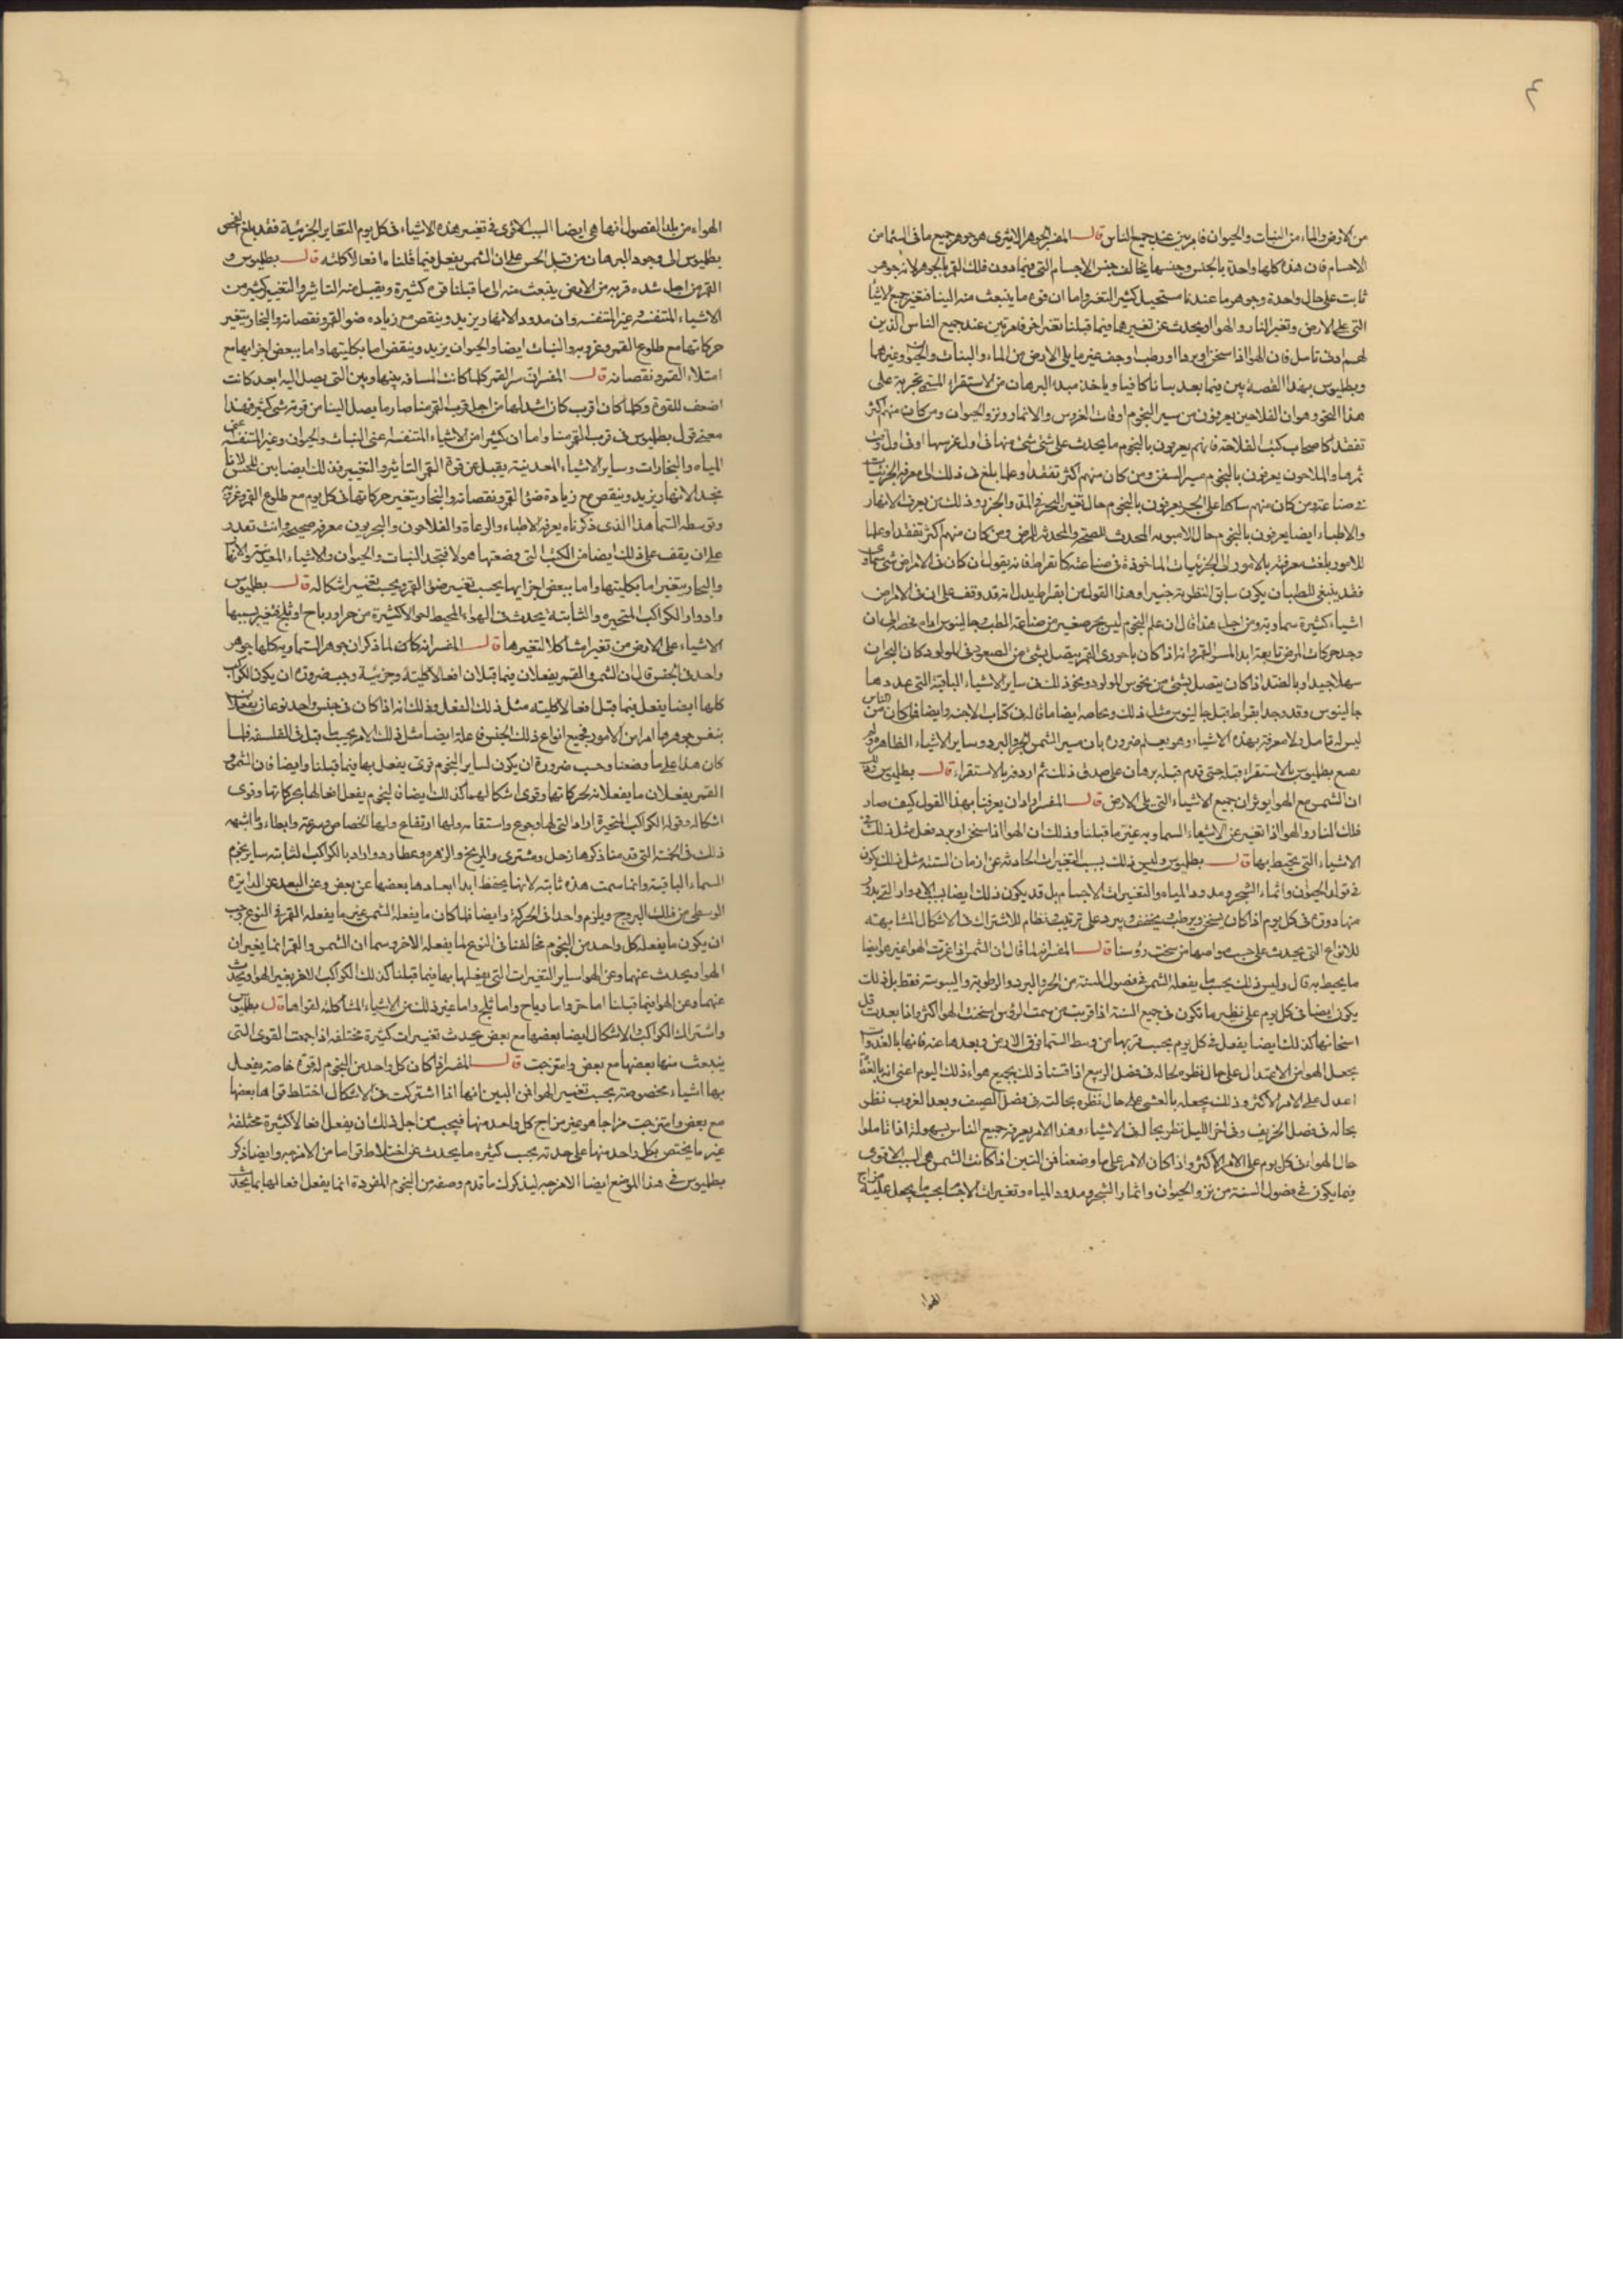 ٤
من الارض والماء من النبات والحيوان فامر بين عند جميع الناس قال المفسر الجوهر الاثيرى هو جوهر جميع ما فى السماء من
الاجسام فان هذه كلها واحدة بالجنس وجنسها يخالف جنس الاجسام التى فيما دون فلك القمر بالجوهر لانه جوهر
ثابت على حال واحدة وجوهر ما عندنا مستحيل كثير التغير واما ان قوة ما ينبعث منه الينا فتغير جميع الاشيا
التى على الارض وتغير النار والهواء ويحدث عن تغيرهما فيما قبلنا تغير اخر فامر بين عند جميع الناس الذين
لهم ادنى تامل فان الهواء اذا سخن او برد او رطب او جف غير ما يلى الارض من الماء والنبات والحيوان وغيرهما
وبطليوس بهذا الفصل يبين فيما بعد بيانا كافيا وياخذ مبدا البرهان من الاستقراء المستى بحرية على
هذا النحو وهو ان الفلاحين يعرفون من سير النجوم اوقات الغروس والاثمار ونزو الحيوان ومن كان منهم اكثر
تفقدا كاصحاب كتب الفلاحة فانهم يعرفون بالنجوم ما يحدث على شئ شئ منها فى اول غرسها او فى اول وقت
ثمرها والملاحون يعرفون بالنجوم مسير السفن ومن كان منهم اكثر تفقدا وعلما بلغ فى ذلك الى معرفة الجزئيات
فى صناعته ومن كان منهم ساكنا على البحر يعرفون بالنجوم حال تغير البحر فى المد والجزر وذلك من يعرف الانهار
والاطباء ايضا يعرفون بالنجوم حال الاهوية المحدثة للصحة والمحدثة للمرض ومن كان منهم اكثر تفقدا وعلما
للامور بلغت معرفته بالامور الى الجزئيات الماخوذة فى صناعته كابقراط فانه يقول ان كان فى الامراض شئ سماوى
فقد ينبغى للطبيب ان يكون سابق النظر به خبيرا وهذا القول من ابقراط يدل انه قد وقف على ان فى الامراض
اشياء كثيرة سماوية ومن اجل هذا قال ان علم النجوم ليس بجزء صغير من صناعة الطب وجالينوس امام
وجد حركات المرض تابعة ابدا لمسير القمر وانه اذا كان باحورى القمر يتصل بشئ من السعود فى المولود كان البحران
سهلا جيدا وبالضد اذا كان يتصل بشئ من نحوس المولود ونحو ذلك فى ساير الاشياء الباقية التى عددها
جالينوس وقد وجد ابقراط قبل جالينوس مثل ذلك وخاصه ايضا ما قاله فى كتاب الاجنه وايضا فان كان من الناس
ليس له تامل ولا معرفة بهذه الاشياء وهو يعلم ضرورة بان مسير الشمس الحر والبرد وساير الاشياء الظاهرة ولم
يصنع بطليوس بالاستقراء قبله حتى قدم قبله برهان على صدق ذلك ثم اردفه بالاستقراء قال بطليوس
ان الشمس مع الهواء يوثران جميع الاشياء التى على الارض قال المفسر اراد ان يعرفنا بهذا القول كيف صار
فلك النار والهواء اذا تغير عن الاشياء السماويه غير ما قبلنا وذلك ان الهواء اذا سخن او برد فعل مثل ذلك فى
الاشياء التى يحيط بها قال بطليوس وليس ذلك بسبب التغيرات الحادثه عن ازمان السنة مثل ذلك يكون
فى توليد الحيوان وانماء الشجر ومدود المياه والتغيرات الاجسام بل قد يكون ذلك ايضا بسبب الادوار التى يدور
منها دورة فى كل يوم اذا كان يسخن ويرطب ويجفف ويبرد على ترتيب ونظام للاشتراك فى الاشكال المشابهه
للانواع التى يحدث على حسب مواضعها من سمت رؤسنا قال المفسر انه لما قال ان الشمس اذا غيرت الهواء غير هو ايضا
ما يحيط به قال وليس ذلك بحسب ما يفعله الشمس فى فصول السنة من الحر والبرد والرطوبة واليبوسة فقط بل ذلك
يكون ايضا فى كل يوم على نظير ما تكون فى جميع السنة اذا قربت من سمت الرؤس اسخنت الهواء اكثر واذا بعدت قل
اسخانها كذلك ايضا يفعل فى كل يوم بحسب قربها من وسط السما فوق الارض وبعدها عنه فانها بالغدوات
يجعل الهواء من الاعتدال على حال نظير حاله فى فصل الربيع اذا قسنا ذلك بجميع هواء ذلك اليوم اعنى انه بالغداة
اعدل على الامر الاكثر وذلك يجعله بالعشى على حال نظيره بحالته فى فصل الصيف وبعد الغروب نظير
بحاله فى فصل الخريف وفى اخر الليل نظير بحاله فى الاشياء وهذا الامر يعرفه جميع الناس بسهولة اذا تاملوا
حال الهواء فى كل يوم على الامر الاكثر واذا كان الامر على ما وضعنا فمن البين اذا كانت الشمس هى السبب الاقوى
فيما يكون فى فصول السنة من نزو الحيوان واثمار الشجر ومدود المياه وتغيرات الاجسام بحسب ما يجعل عليه مزاج
الهواء
الهواء من تلك الفصول انها هى ايضا السبب الاقوى فى تغيير هذه الاشياء فى كل يوم التغاير الجزئية فقد بلغ الفحص
بطليوس الى وجود البرهان من قبل الحس على ان الشمس يفعل فيما قلناه افعالا كليه قال بطليوس و
القمر من اجل شده قربه من الارض ينبعث منه الى ما قبلنا قوة كثيرة ويقبل منه التاثير والتغيير كثير من
الاشياء المتنفسة وغير المتنفسة وان مدود الانهار يزيد وينقص مع زياده ضوء القمر ونقصانه والبخار يتغير
حركاتها مع طلوع القمر وغروبه والنبات ايضا والحيوان يزيد وينقص اما بكليتها واما ببعض اجزايها مع
امتلاء القمر ونقصانه قال المفسر ان سير القمر كلما كانت المسافة بينها وبين التى يصل اليه ابعد كانت
اضعف للقوة وكلما كان اقرب كان اشد لها من اجل قرب القمر منا صار ما يصل الينا من قوته شئ كثير فهذا
معنى قول بطليوس فى قرب القمر منا واما ان كثيرا من الاشياء المتنفسة اعنى النبات والحيوان وغير المتنفسة اعنى
المياه والبخارات وساير الاشياء المعدنية يقبل عن قوة القمر التاثير والتغيير فذلك ايضا بين للحس لانا
نجد الانهار يزيد وينقص مع زيادة ضوء القمر ونقصانه والبخار يتغير حركاتها فى كل يوم مع طلوع القمر وغروبه
وتوسطه السما هذا الذى ذكرناه يعرفه الاطباء والرعاة والفلاحون والبحريون معرفه صحيحة وانت تقدر
على ان يقف على ذلك ايضا من الكتب التى وضعتها هولا فتجد النبات والحيوان والاشياء المعدنية والانهار
والبحار يتغير اما بكليتها واما ببعض اجزايها بحسب تغيير ضوء القمر وبحسب تغيير اشكاله قال بطليوس
وادوار الكواكب المتحيره والثابتة يحدث فى الهواء المحيط احوالا كثيرة من حر او رياح او ثلج فتغير بسببها
الاشياء على الارض من تغير امشاكلا لتغيرها قال المفسر انه كان لما ذكر ان جوهر السماوية كلها جوهر
واحد فى الجنس قال ان الشمس والقمر يفعلان فيما قبلنا افعالا كلية وجزئية وجب ضرورة ان يكون الكواكب
كلها ايضا يفعل فيما قبلنا افعالا كلية مثل ذلك الفعل وذلك انه اذا كان فى جنس واحد نوعان يفعلان
بنفس جوهرهما امرا من الامور فجميع انواع ذلك الجنس فاعلة ايضا مثل ذلك الامر بحسب ما قيل فى الفلسفه فلما
كان هذا على ما وضعنا وجب ضرورة ان يكون لساير النجوم قوى يفعل بها فيما قبلنا وايضا فان الشمس و
القمر يفعلان ما يفعلانه بحركاتها وقوى اشكالهما كذلك ايضا فالنجوم يفعل افعالها بحركاتها وقوى
اشكاله وقوله الكواكب المتحيرة اراد التى لها رجوع واستقامه ولها ارتفاع ولها انخفاض وسرعة وابطاء وما اشبه
ذلك فى الخمسة التى قدمنا ذكرها زحل ومشترى والمريخ والزهره وعطارد واراد بالكواكب الثابتة ساير نجوم
السماء الباقية وانما سمت هذه ثابته لانها يحفظ ابدا ابعادها بعضها عن بعض وعن البعد عن الدايره
الوسطى من فلك البروج ويلزم واحدا فى الحركة وايضا فلما كان ما يفعله الشمس غير ما يفعله القمر فى النوع وجب
ان يكون ما يفعله كل واحد من النجوم مخالفا فى النوع لما يفعله الاخر وسما ان الشمس والقمر انما يغيران
الهواء ويحدث عنهما وعن الهواء ساير التغيرات التى يفعلها بها فيما قبلنا كذلك الكواكب الاخر يغير الهواء ويحدث
عنهما وعن الهواء فيما قبلنا اما حر واما رياح واما ثلج واما غير ذلك من الاشياء المشاكلة لقواها قال بطليوس
واشتراك الكواكب والاشكال ايضا بعضها مع بعض يحدث تغييرات كثيرة مختلفه اذا جمعت القوى التى
ينبعث منها بعضها مع بعض وامتزجت قال المفسر اذا كان كل واحد من النجوم له قوة خاصة يفعل
بها اشياء مخصوصة بحسب تغيير الهواء فمن البين انها اذا اشتركت فى الاشكال اختلط قواها بعضها
مع بعض وامتزجت مزاجا هو غير مزاج كل واحد منها فيجب من اجل ذلك ان يفعل افعالا كثيرة مختلفة
غير ما يختص بكل واحد منها على حدته بحسب كثيره ما يحدث عن اختلاط قواها من الامزجه وايضا ذكر
بطليوس فى هذا الموضع ايضا الامزجه ليذكرك ما قدم وصفه من النجوم المفردة انما يفعل افعالها بما يتحد